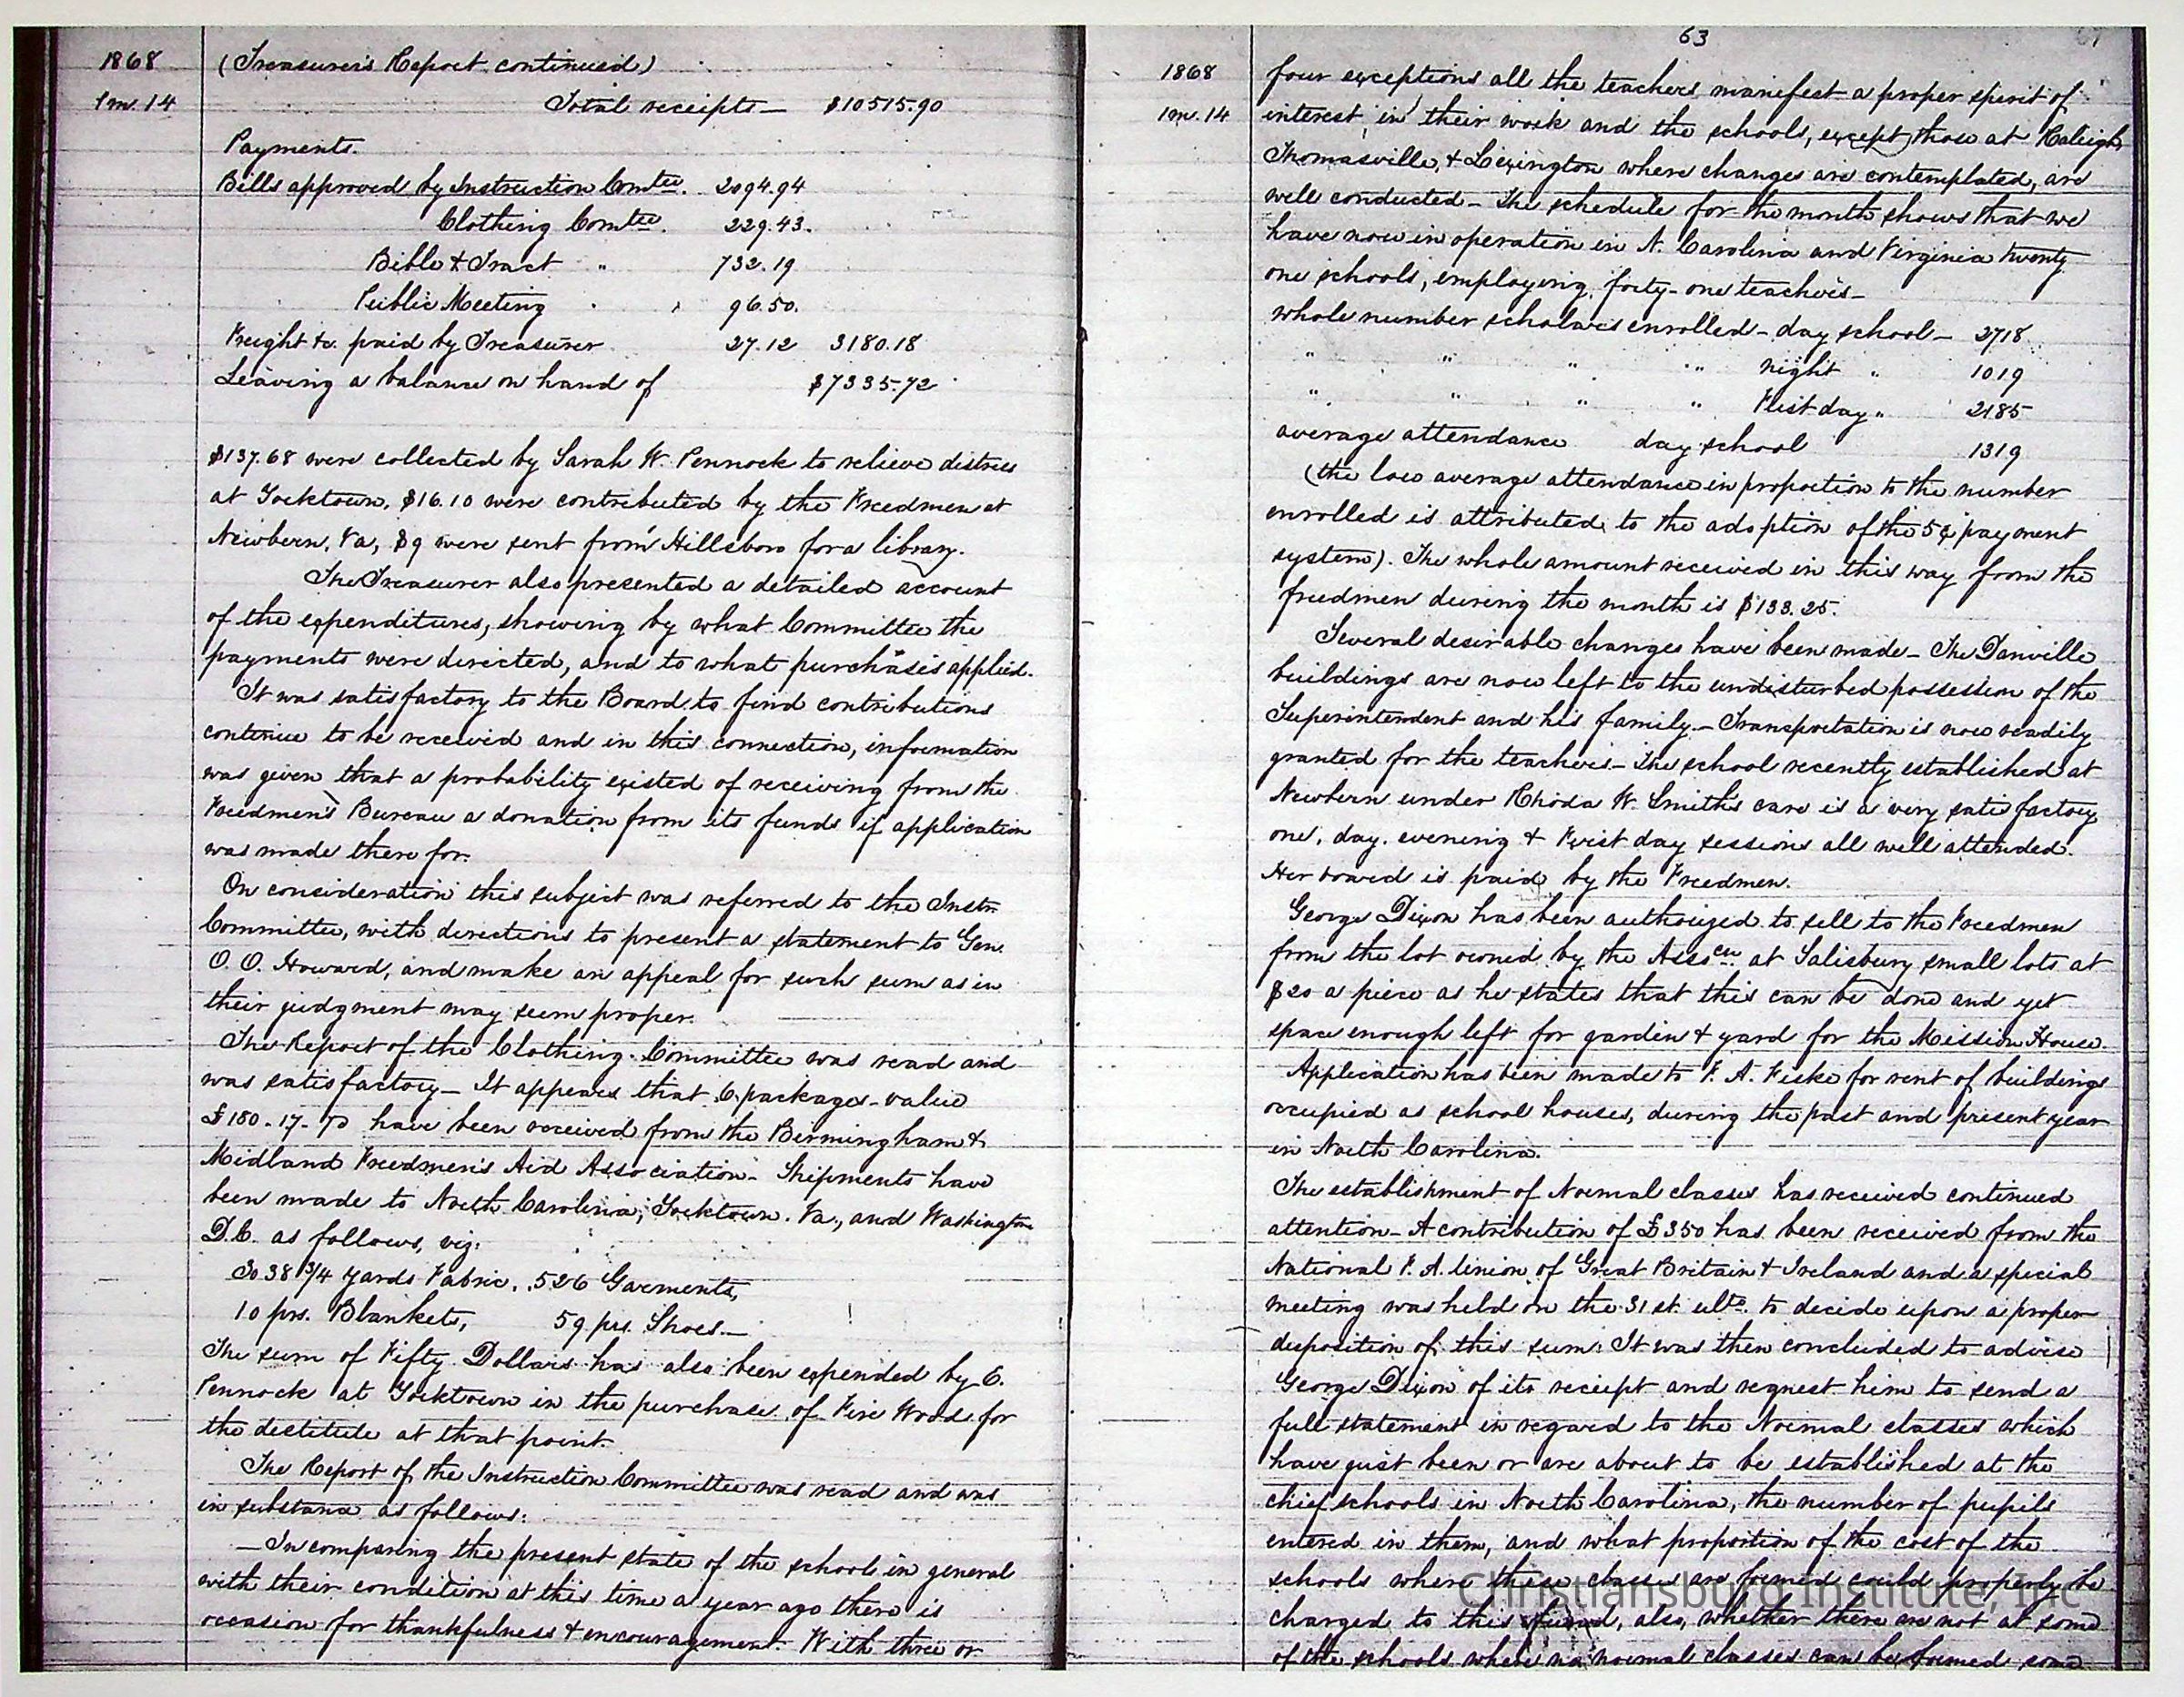 1868 (Treasurer's Report continued)
1 m. 14 Total receipts — $10515.90
Payments.
Bills approved by Instruction Comtee. 2094.94
Clothing Comtee. 229.43.
Bible & Tract " 732.19
Public Meeting " 96.50.
Freight &c. paid by Treasurer 27.12 3180.18
Leaving a balance on hand of $7335.72
$137.68 were collected by Sarah W. Pennock to relieve distress
at Yorktown, $16.10 were contributed by the Freedmen at
Newbern, Va, $9 were sent from Hillsboro for a library.
The Treasurer also presented a detailed account
of the expenditures, showing by what Committee the
payments were directed, and to what purchases applied.
It was satisfactory to the Board to find contributions
continue to be received and in this connection, information
was given that a probability existed of receiving from the
Freedmen's Bureau a donation from its funds if application
was made there for.
On consideration this subject was referred to the Instn.
Committee, with directions to present a statement to Gen.
O. O. Howard, and make an appeal for such sum as in
their judgment may seem proper.
The Report of the Clothing Committee was read and
was satisfactory — It appears that 6 packages - value
£180 - 17 - have been received from the Birmingham &
Midland Freedmen's Aid Association - Shipments have
been made to North Carolina, Yorktown. Va., and Washington
D.C. as follows, viz:
3038 3/4 yards Fabric, 526 Garments,
10 prs. Blankets, 59 prs. Shoes. —
The sum of Fifty Dollars has also been expended by E.
Pennock at Yorktown in the purchase of Fire Wood for
the destitute at that point.
The Report of the Instruction Committee was read and was
in substance as follows:
— In comparing the present state of the schools in general
with their condition at this time a year ago there is
occasion for thankfulness & encouragement. With three or
63
1868 four exceptions all the teachers manifest a proper spirit of
1 m. 14 interest in their work and the schools, except those at Raleigh,
Thomasville, & Lexington where changes are contemplated, are
well conducted - The schedule for the month shows that we
have now in operation in N. Carolina and Virginia twenty
one schools, employing forty-one teachers —
whole number scholars enrolled - day school — 2718
" " " " night " 1019
" " " " First day " 2185
average attendance day school 1319
(the low average attendance in proportion to the number
enrolled is attributed to the adoption of the 5¢ payment
system). The whole amount received in this way from the
freedmen during the month is $133.25.
Several desirable changes have been made — The Danville
buildings are now left to the undisturbed possession of the
Superintendent and his family. — Transportation is now readily
granted for the teachers — The school recently established at
Newbern under Rhoda W. Smith's care is a very satisfactory
one, day, evening & First day sessions all well attended.
Her board is paid by the Freedmen.
George Dixon has been authorized to sell to the Freedmen
from the lot owned by the Asscn. at Salisbury small lots at
$20 a piece as he states that this can be done and yet
space enough left for garden & yard for the Mission House.
Application has been made to F. A. Fiske for rent of buildings
occupied as school houses, during the past and present year
in North Carolina.
The establishment of Normal classes has received continued
attention — A contribution of £350 has been received from the
National F. A. Union of Great Britain & Ireland and a special
meeting was held on the 31st. ulto. to decide upon a proper
disposition of this sum: It was then concluded to advise
George Dixon of its receipt and request him to send a
full statement in regard to the Normal classes which
have just been or are about to be established at the
chief schools in North Carolina, the number of pupils
entered in them, and what proportion of the cost of the
schools where these classes are formed could properly be
charged to this fund, also, whether there are not at some
of the schools where no normal classes can be formed some
Christiansburg Institute, Inc